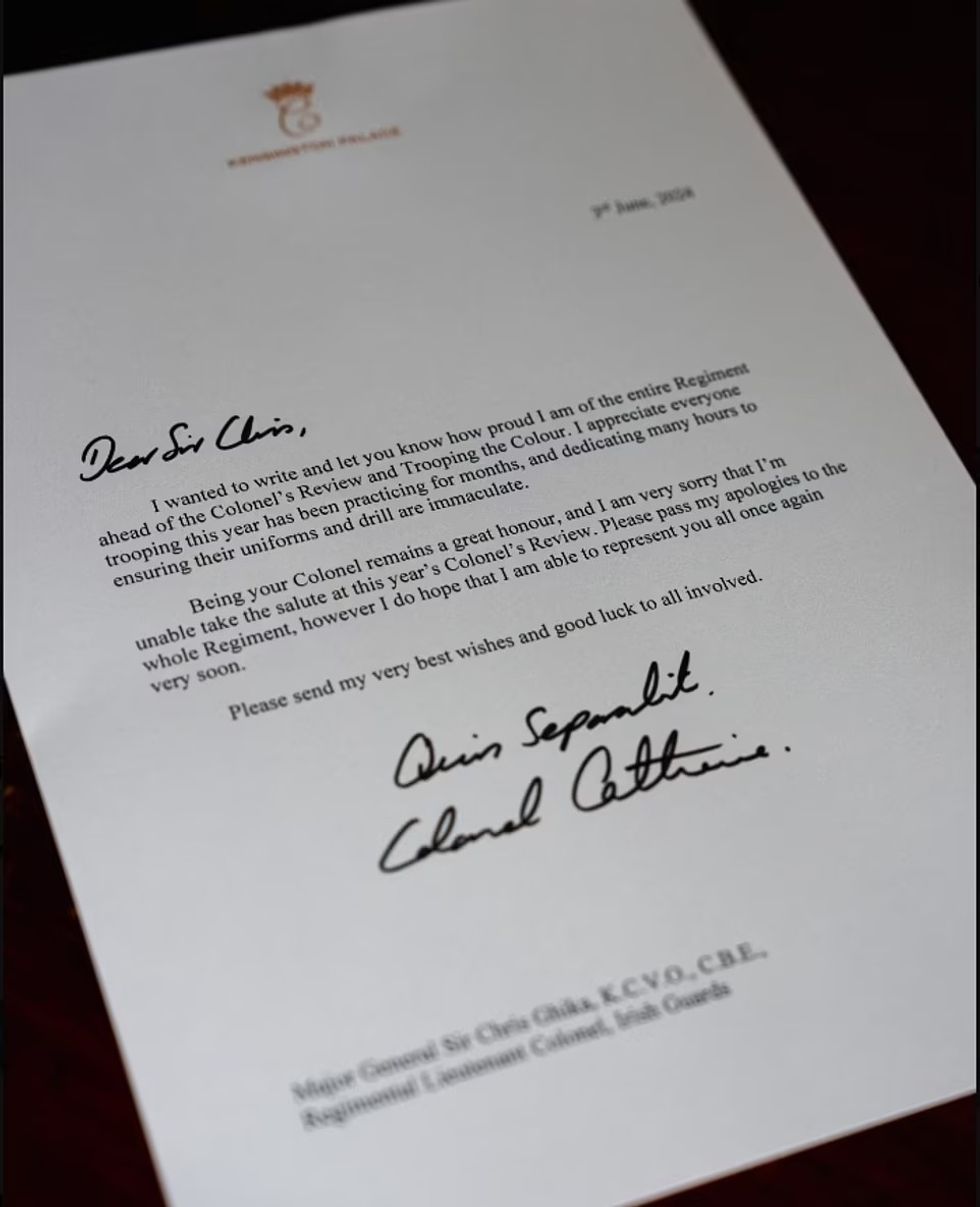 C
KENSINGTON PALACE
June, 2024
Dear Sir Chris,
I wanted to write and let you know how proud I am of the entire Regiment
ahead of the Colonel's Review and Trooping the Colour. I appreciate everyone
trooping this year has been practicing for months, and dedicating many hours to
ensuring their uniforms and drill are immaculate.
Being your Colonel remains a great honour, and I am very sorry that I'm
unable take the salute at this year's Colonel's Review. Please pass my apologies to the
whole Regiment, however I do hope that I am able to represent you all once again
very soon.
Please send my very best wishes and good luck to all involved.
Quis Separabit.
Colonel Catherine.
Major General Sir Chris Ghika, K.C.V.O., C.B.E.,
Regimental Lieutenant Colonel, Irish Guards